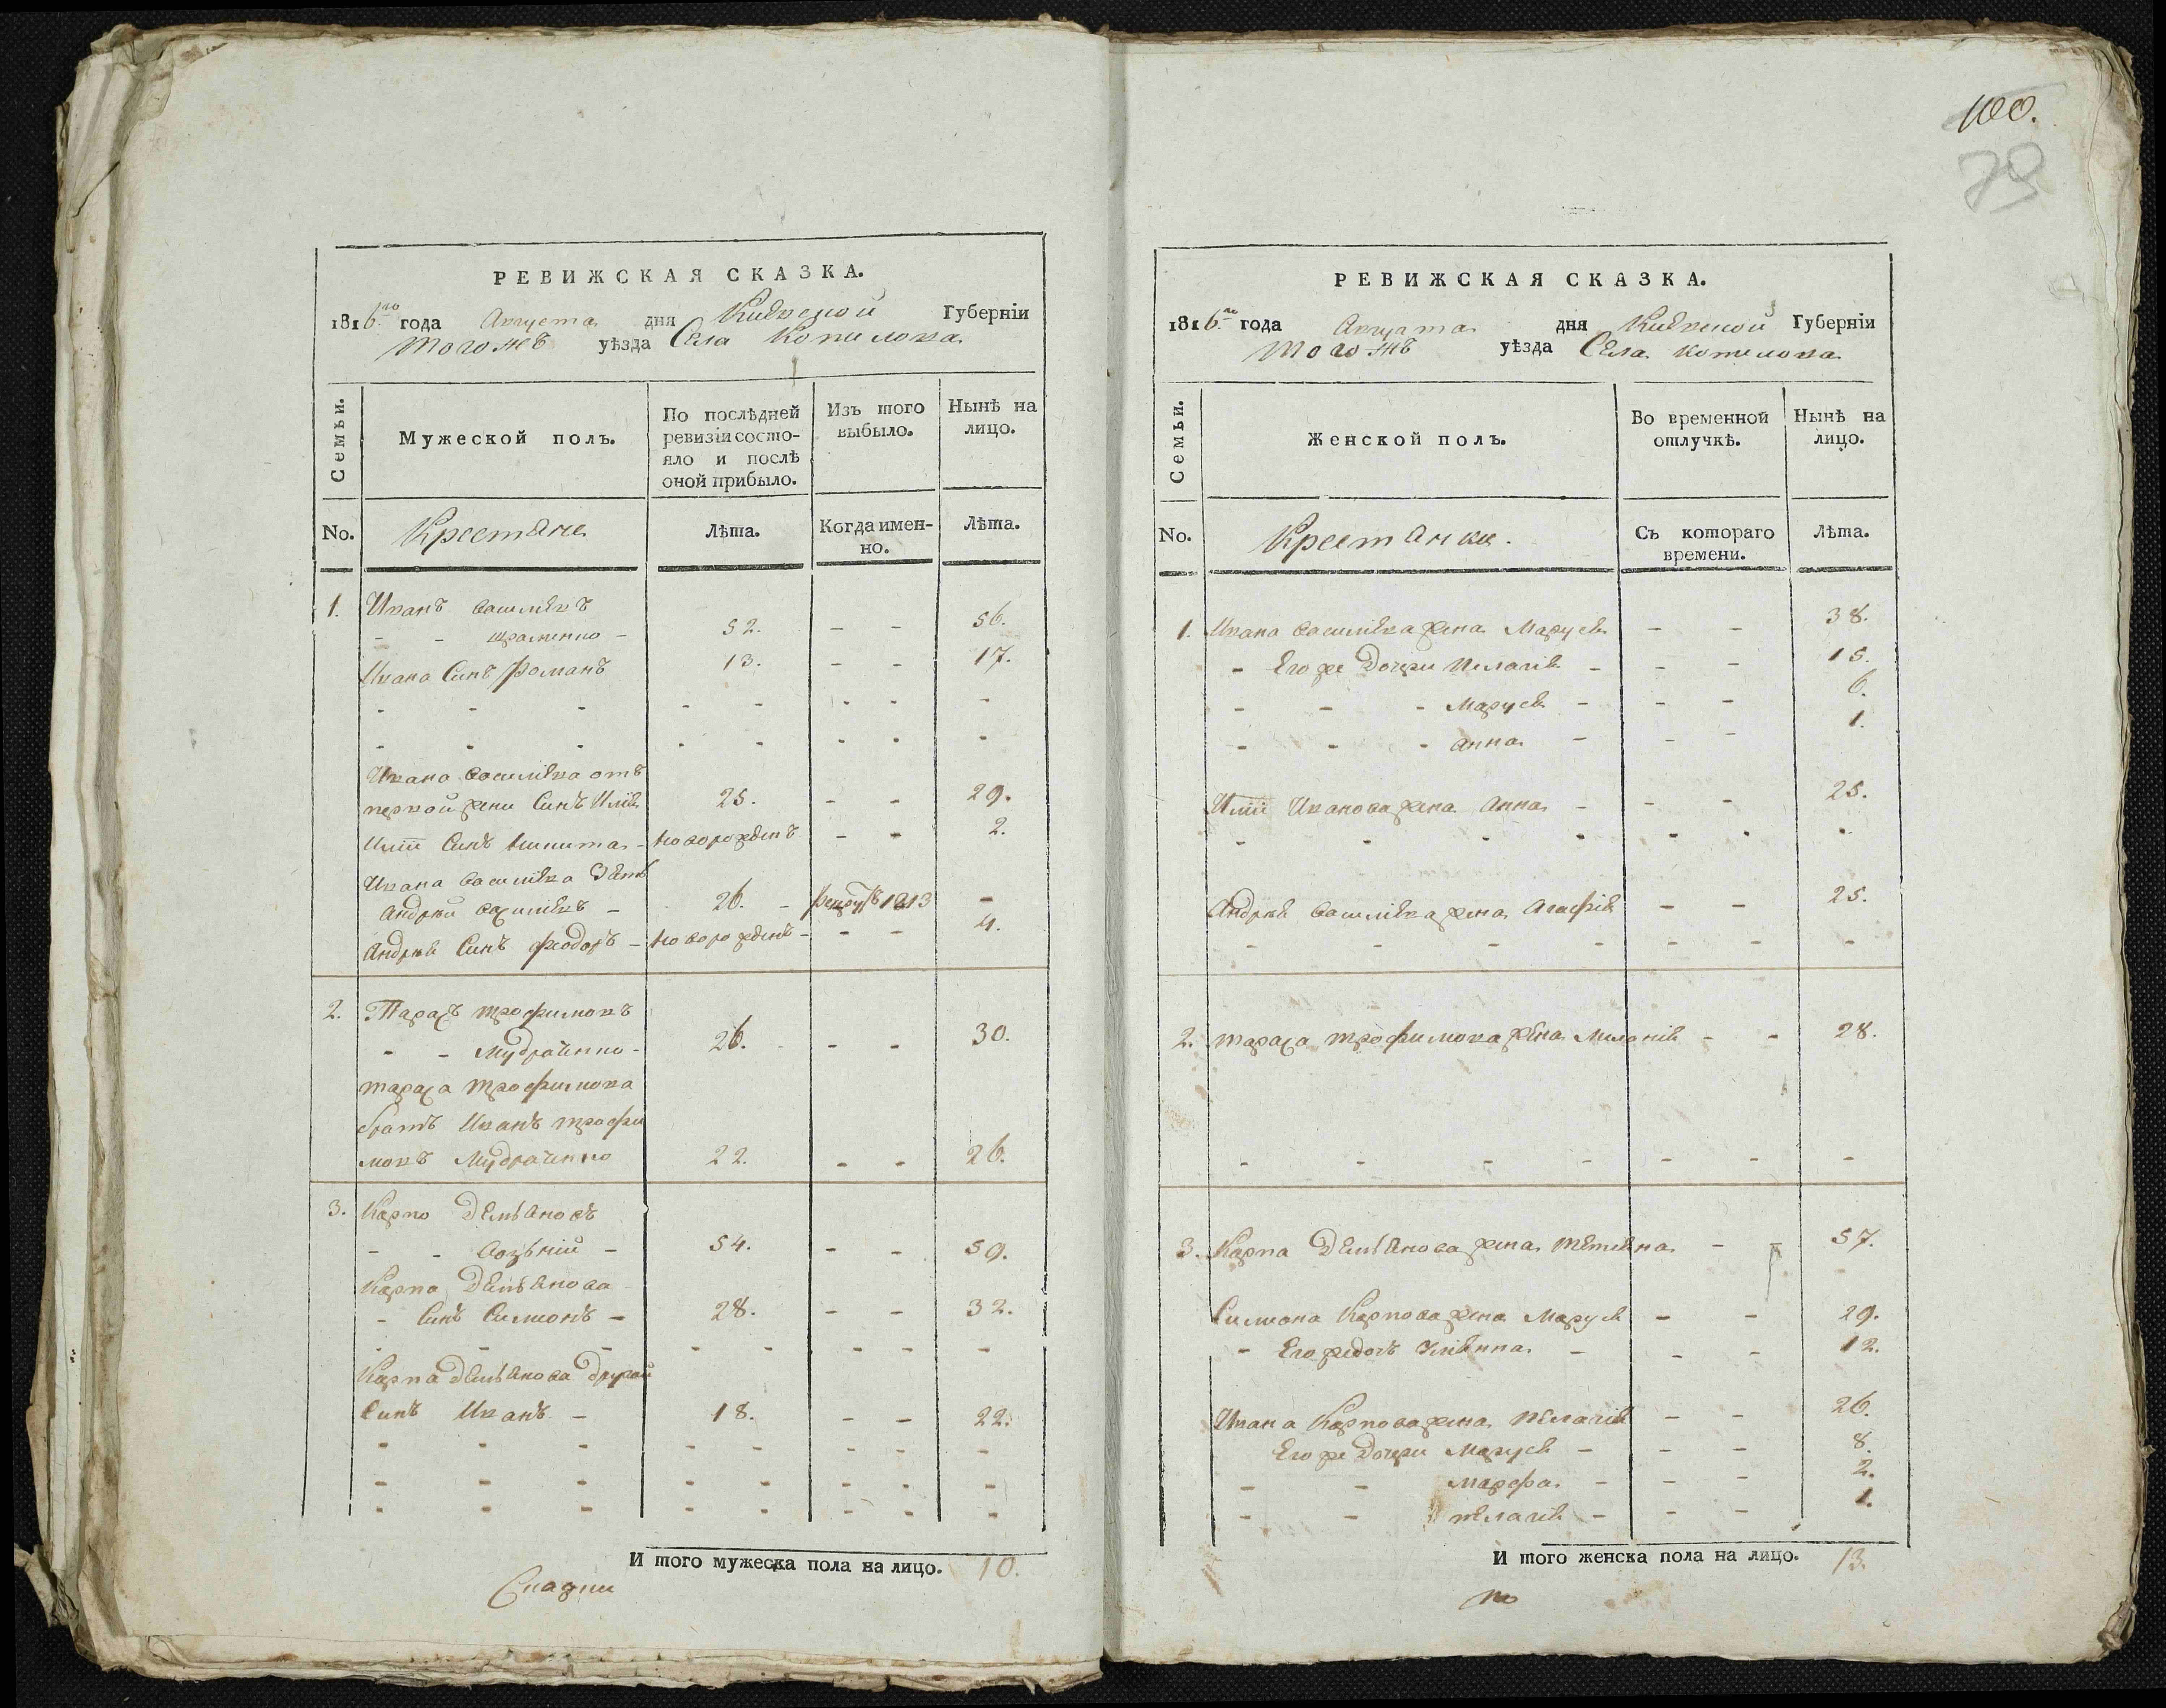 100.
79
РЕВИЖСКАЯ СКАЗКА.
1816го года Августа дня Киевской Губерніи
тогожъ уѣзда Села Копилова
Семьи.
Мужеской полъ.
По послѣдней ревизіи состояло и послѣ оной прибыло.
Изъ того выбыло.
Нынѣ на лицо.
No.
Крестяне
Лѣта.
Когда именно.
Лѣта.
1. Иванъ Василіевъ
- - - 52. - - 56.
Ивана Синъ Романъ 13. - - 17.
Ивана Василіева отъ
первой жени Синъ Иліа 25. - - 29.
Иліи Синъ Никита - новорожденъ - - 2.
Ивана Василіева Зять
Андрей Василіевъ - 26. - Рекрутъ 1813 -
Андрея Синъ Феодоръ - новорожденъ - - - 4.
2. Тарасъ Трофимовъ
- - Мудраченко - 26. - - 30.
Тараса Трофимова
братъ Иванъ Трофи
мовъ Мудраченко 22. - - 26.
3. Карпо Демьяновъ
- - - 54. - - 59.
Карпа Демьянова
- Синъ Симеонъ - 28. - - 32.
Карпа Демьянова другой
Синъ Иванъ - 18. - - 22.
И того мужеска пола на лицо. 10.
Сказки
РЕВИЖСКАЯ СКАЗКА.
1816го года Августа дня Киевской Губерніи
тогожъ уѣзда Села Копилова
Семьи.
Женской полъ.
Во временной отлучкѣ.
Нынѣ на лицо.
No.
Крестянки.
Съ котораго времени.
Лѣта.
1. Ивана Василіева жена Марусья - - 38.
- Его же Дочери Пелагія - - - 15.
- - - Марусья - - - 6.
- - - Анна - - - 1.
Иліи Иванова жена Анна - - - 25.
Андрея Василіева жена Агафія - - 25.
2. Тараса Трофимова жена Меланія - - 28.
3. Карпа Демьянова жена Тетяна - - 57.
Симеона Карпова жена Марусья - - 29.
- Его же дочь - - - 12.
Ивана Карпова жена Пелагія - - 26.
Его же Дочери Марусья - - - 8.
- - Марфа - - - 2.
- - Пелагія - - - 1.
И того женска пола на лицо. 13.
по